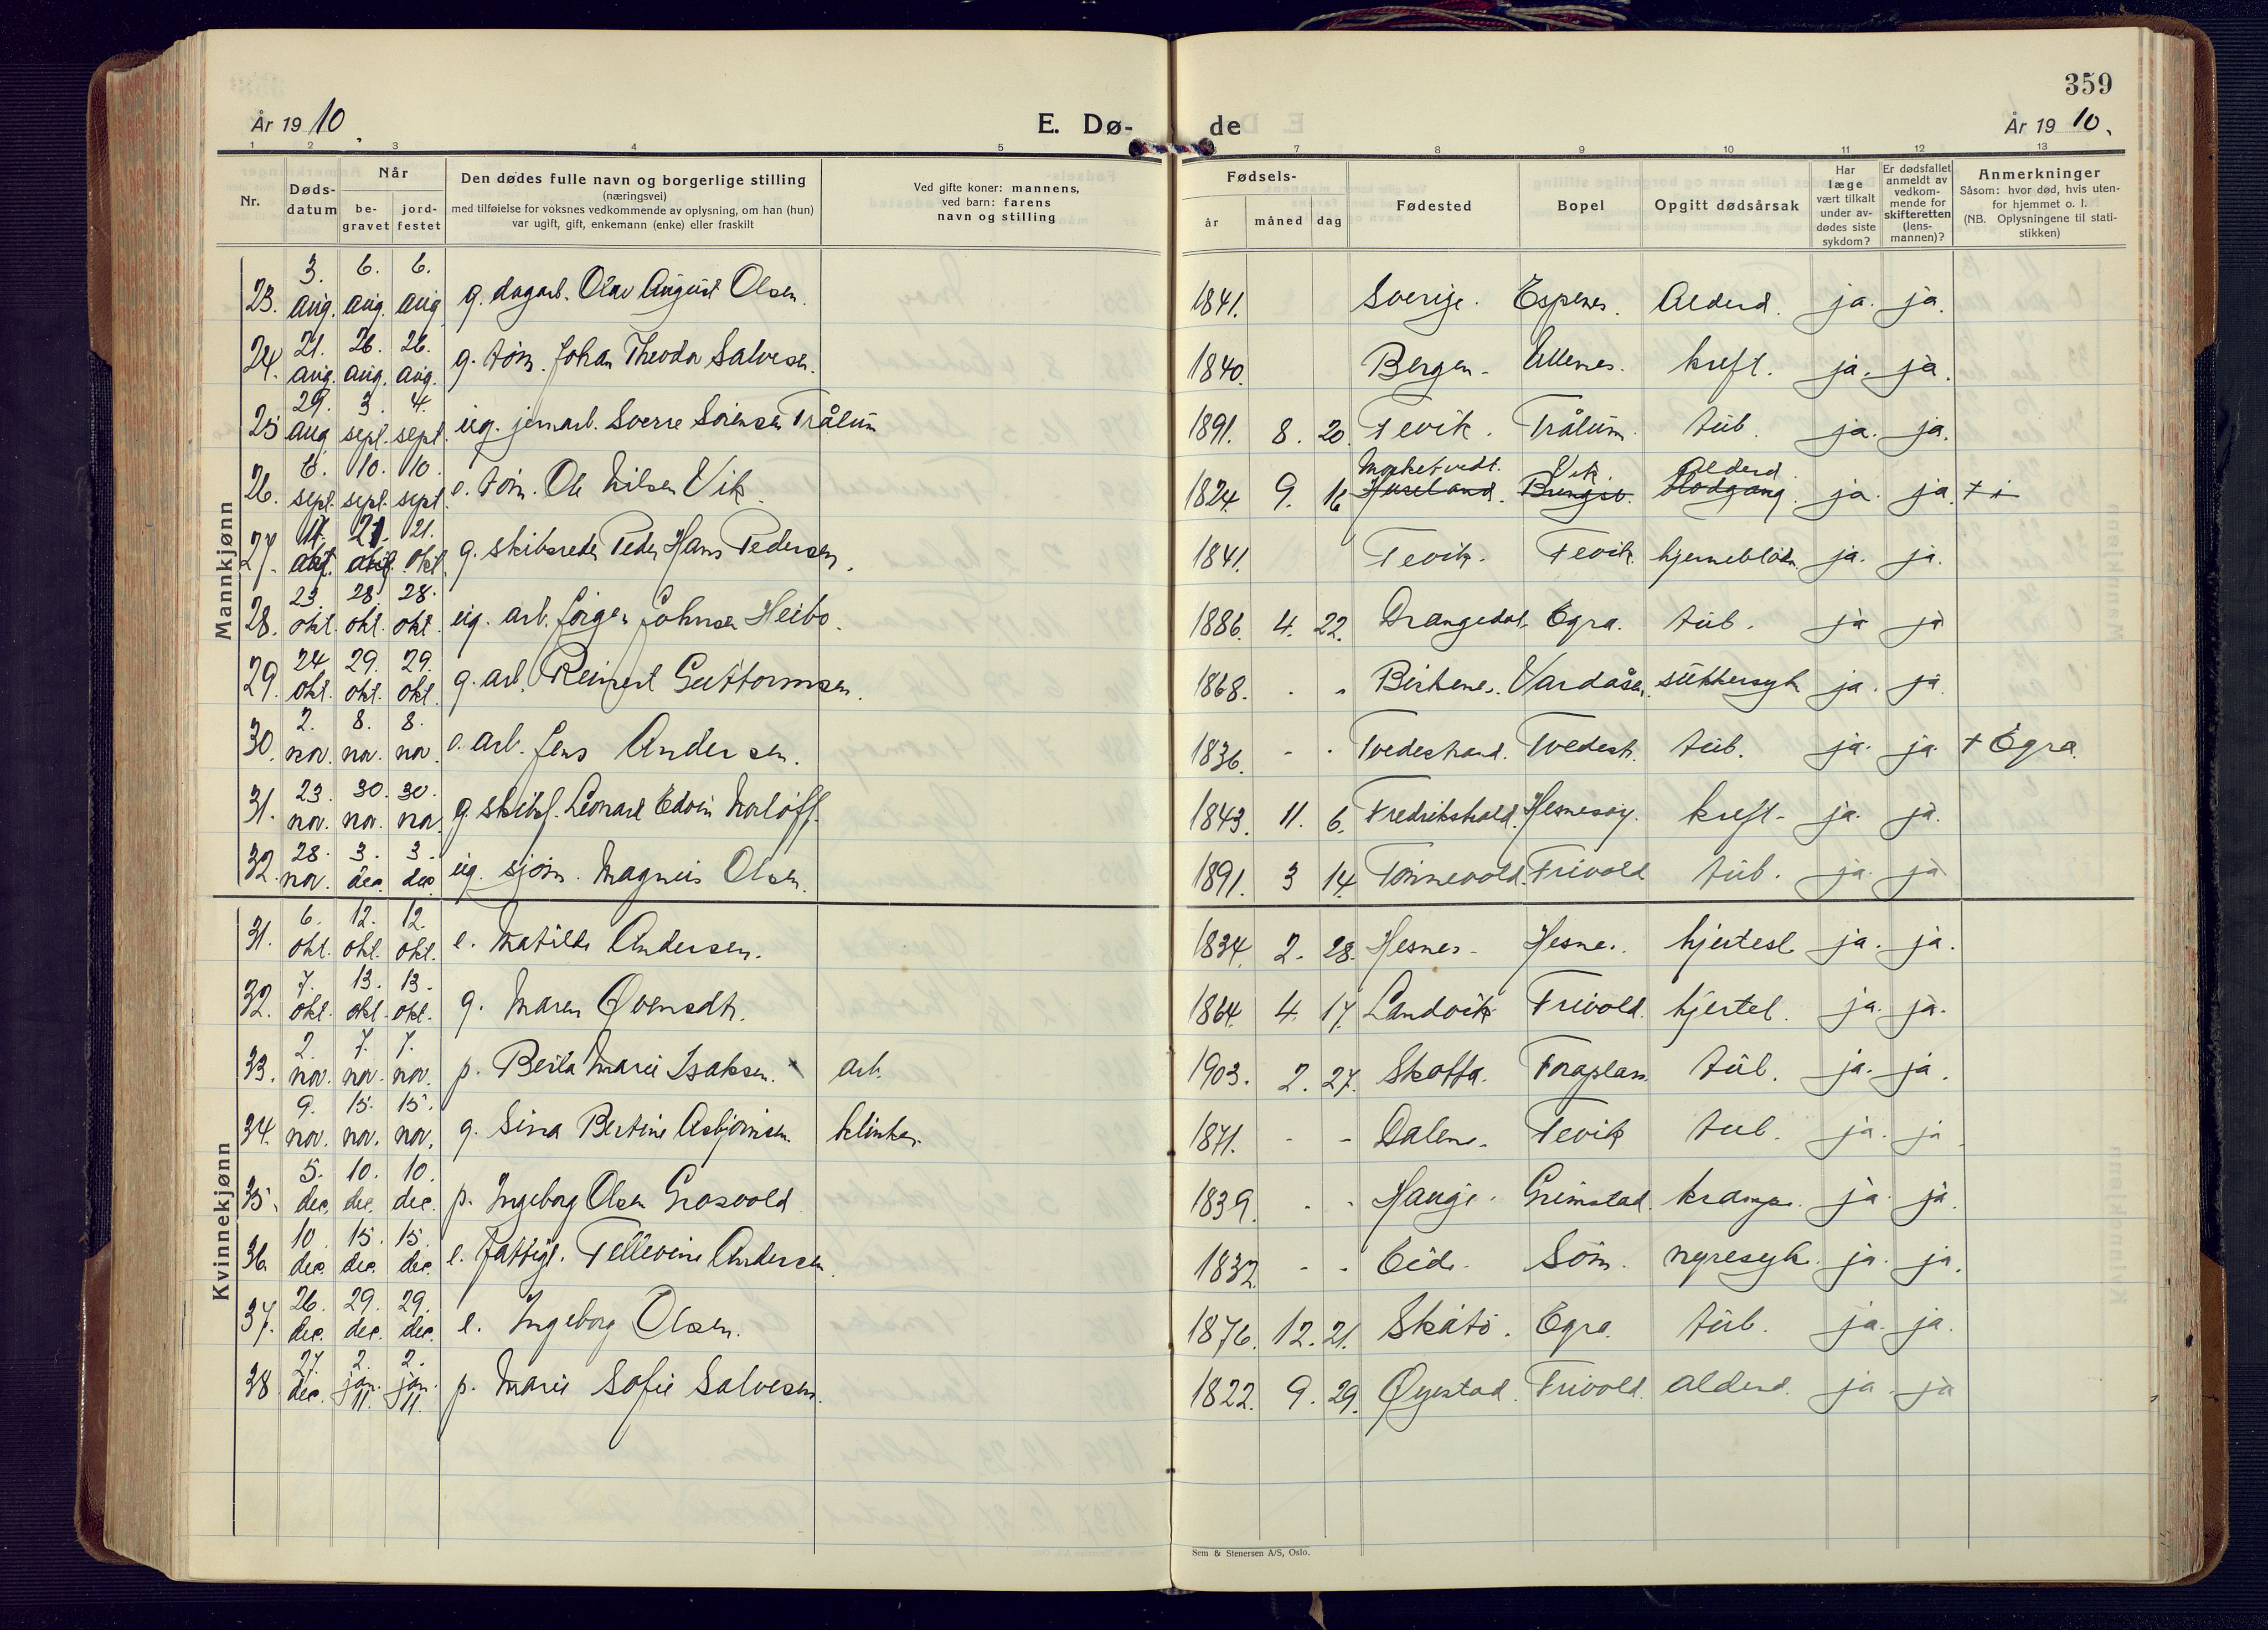 359
År 1910.
E. Dø-
de
År 1910.
1 2 3 4 5 7 8 9 10 11 12 13
Nr.
Døds-
datum
Når
be-
gravet
jord-
festet
Den dødes fulle navn og borgerlige stilling
(næringsvei)
med tilføielse for voksnes vedkommende av oplysning, om han (hun)
var ugift, gift, enkemann (enke) eller fraskilt
Ved gifte koner: mannens,
ved barn: farens
navn og stilling
Fødsels-
år måned dag
Fødested
Bopel
Opgitt dødsårsak
Har
læge
vært tilkalt
under av-
dødes siste
sykdom?
Er dødsfallet
anmeldt av
vedkom-
mende for
skifteretten
(lens-
mannen)?
Anmerkninger
Såsom: hvor død, hvis uten-
for hjemmet o. l.
(NB. Oplysningene til stati-
stikken)
Mannkjønn
23. 3. aug. 6. aug. 6. aug g. dagarb. Olav August Olsen. 1841. Sverige. Espenes. Alderd. ja. ja.
24. 21. aug. 26. aug. 26. aug. g. tøm. Johan Theodor Salvesen. 1840. Bergen. Ullenes. kreft. ja. ja.
25 29. aug 3. sept. 4. sept. ug. jernarb. Sverre Sørensen Trålum 1891. 8. 20. Fevik. Trålum. tub. ja. ja.
26. 6. sept. 10. sept. 10. sept. e. tøm. Ole Nilsen Vik. 1824. 9. 16 Vik. Alderd. blodgang. ja. ja.
27. 17. okt. 21. okt. 21. okt. g. skibsreder Peder Hans Pedersen. 1841. Fevik. Fevik. hjerneblødn. ja. ja.
28. 23. okt. 28. okt. 28. okt. ug. arb. Jørgen Johnsen Heibø. 1886. 4. 22. Drangedal. Egra. tub. ja ja
29. 24 okt. 29. okt. 29. okt. g. arb. Reinert Guttormsen. 1868. Birkenes. Vardåsen. sukkersyk ja. ja.
30. 2. nov. 8. nov. 8. nov. e. arb. Jens Andersen. 1836. Tvedestrand. Tvedestr. tub. ja. ja. + Egra.
31. 23. nov. 30. nov. 30. nov. g. skibsf. Leonard Edvin Norløff. 1843. 11. 6. Fredrikshald. Hesnesøy. kreft. ja. ja.
32. 28. nov. 3. dec. 3. dec. ug. sjøm. Magnus Olsen. 1891. 3 14. Tønnevold. Frivold tub. ja. ja
Kvinnekjønn
31. 6. okt. 12. okt. 12. okt. e. Matilde Andersen. 1834. 2. 28. Hesnes. Hesnes. hjertesl. ja. ja.
32. 7. okt. 13. okt. 13. okt. g. Maren Qvensdtr. 1864. 4. 17. Landvik Frivold. hjertel. ja. ja.
33. 2. nov. 7. nov. 7. nov. p. Berta Marie Isaksen. arb. 1903. 2. 27. Skotta. Foraplass. tub. ja. ja.
34. 9. nov. 15. nov. 15. nov. g. Sina Bertine Asbjørnsen. klinker. 1871. Dalene. Fevik tub. ja. ja.
35. 5. dec. 10. dec. 10. dec. p. Ingeborg Olsen Grosvold 1839. Hauge. Grimstad. krampe. ja. ja.
36. 10. dec. 15. dec. 15. dec. e. fattigl. Tellevine Andersen. 1832. Eide. Søm. nyresyk. ja. ja.
37. 26. dec. 29. dec. 29. dec. e. Ingeborg Olsen. 1876. 12. 21. Skåtø. Egra. tub. ja. ja.
38 27. dec. 2. jan. 11. 2. jan. 11. p. Marie Sofie Salvesen. 1822. 9. 29. Øyestad. Frivold. alderd. ja. ja
Sem & Stenersen A/S, Oslo.